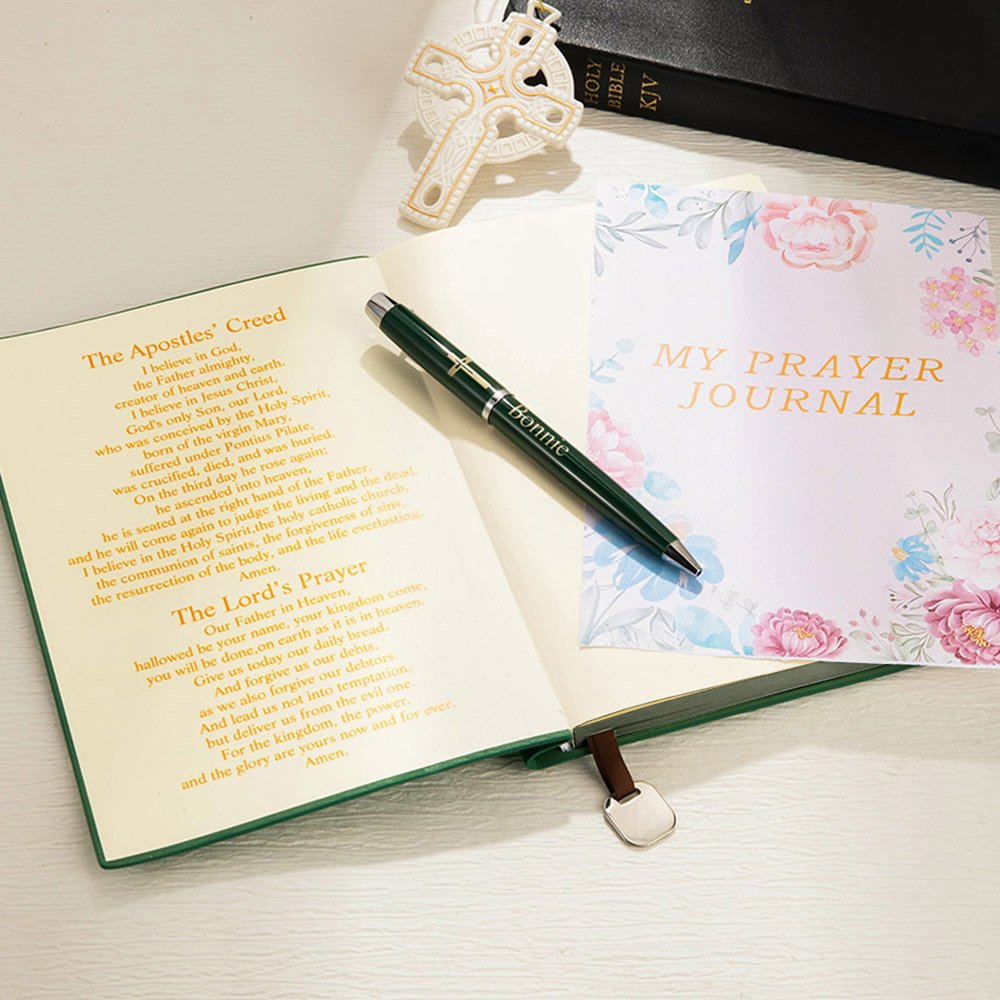 The Apostles' Creed
I believe in God,
the Father almighty,
creator of heaven and earth.
I believe in Jesus Christ,
God's only Son, our Lord,
who was conceived by the Holy Spirit,
born of the virgin Mary,
suffered under Pontius Pilate,
was crucified, died, and was buried.
On the third day he rose again;
he ascended into heaven,
he is seated at the right hand of the Father,
and he will come again to judge the living and the dead.
I believe in the Holy Spirit,the holy catholic church,
the communion of saints, the forgiveness of sins,
the resurrection of the body, and the life everlasting.
Amen.
The Lord's Prayer
Our Father in Heaven,
hallowed be your name, your kingdom come,
you will be done,on earth as it is in heaven.
Give us today our daily bread.
And forgive us our debts,
as we also forgive our debtors.
And lead us not into temptation,
but deliver us from the evil one.
For the kingdom, the power,
and the glory are yours now and for ever.
Amen.
Bonnie
MY PRAYER
JOURNAL
HOLY
BIBLE
KJV